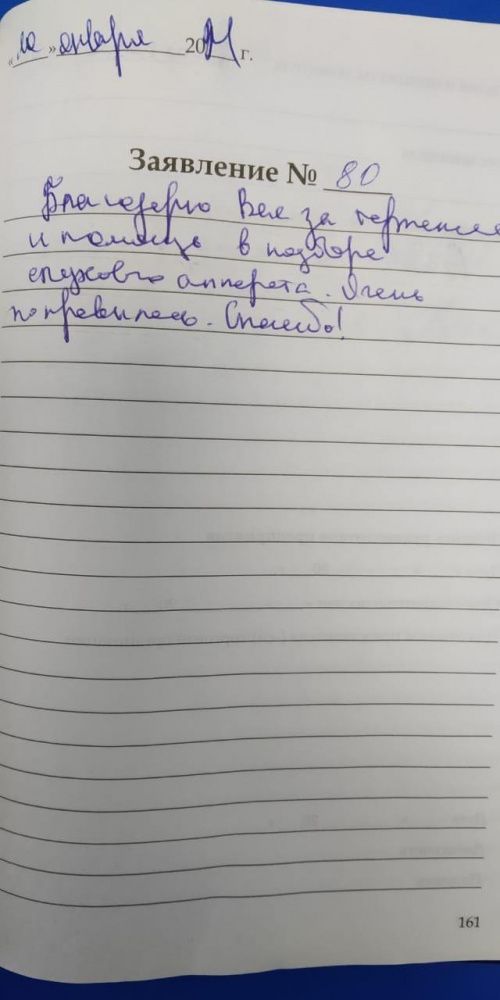 «10» января 2024 г.
Заявление № 80
Благодарю Вас за терпение
и помощь в подборе
слухового аппарата. Очень
понравилось. Спасибо!
161